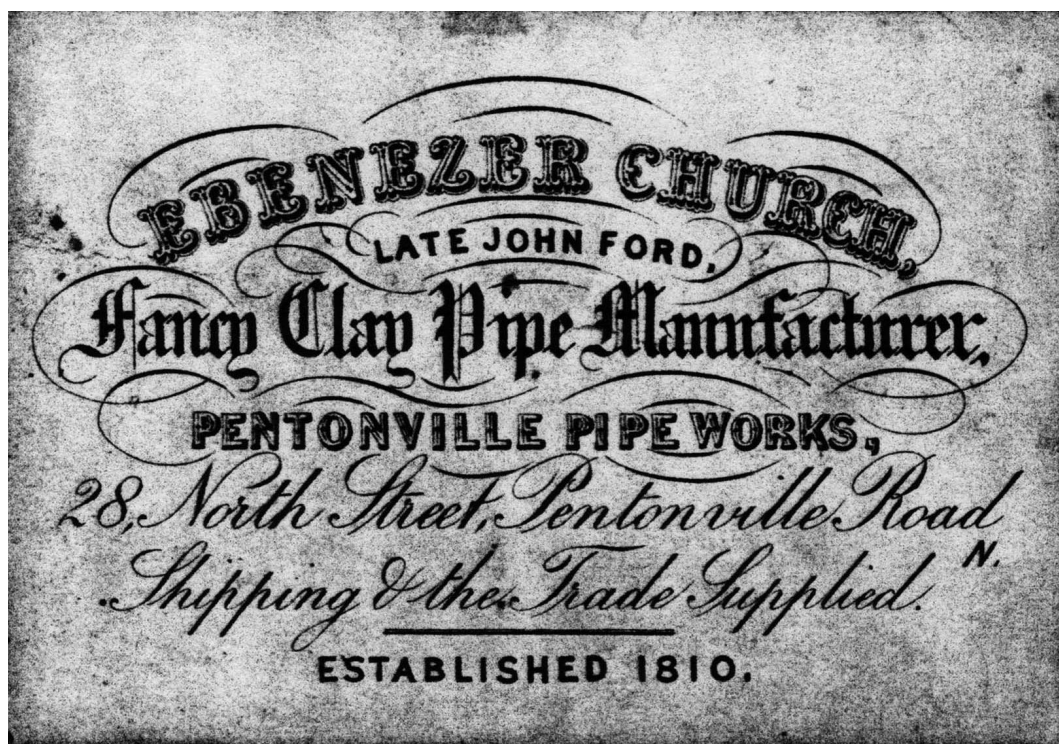 EBENEZER CHURCH,
LATE JOHN FORD,
Fancy Clay Pipe Manufacturer,
PENTONVILLE PIPE WORKS,
28, North Street, Pentonville Road
N.
Shipping & the Trade Supplied.
ESTABLISHED 1810.